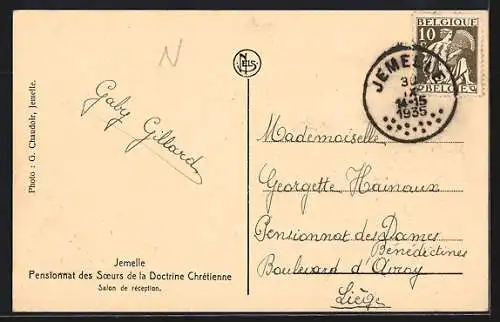 N
NELS
BELGIQUE
10
c
BELGIË
JEMELLE
30
IX
14-15
1935
Photo : G. Chaudoir, Jemelle.
Gaby Gillard
Mademoiselle
Georgette Hainaux
Pensionnat des Dames
Bénédictines
Boulevard d'Avroy
Liège
Jemelle
Pensionnat des Sœurs de la Doctrine Chrétienne
Salon de réception.